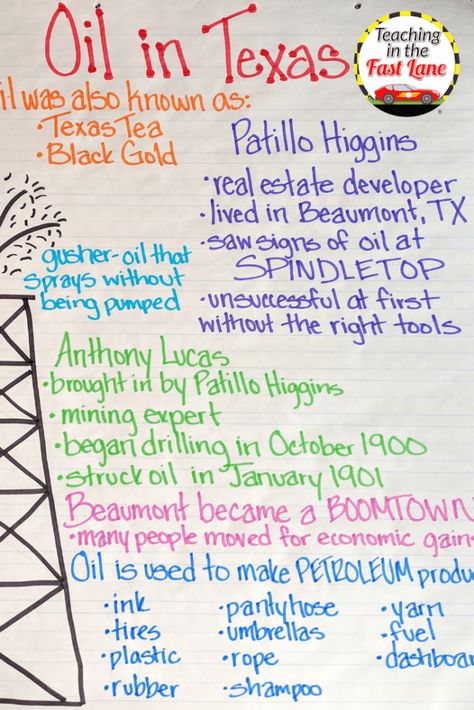 Oil in Texas
Teaching
in the
Fast Lane
il was also known as:
•Texas Tea
•Black Gold
Patillo Higgins
•real estate developer
•lived in Beaumont, TX
•saw signs of oil at
SPINDLETOP
•unsuccessful at first
without the right tools
gusher-oil that
sprays without
being pumped
Anthony Lucas
•brought in by Patillo Higgins
•mining expert
•began drilling in October 1900
•struck oil in January 1901
Beaumont became a BOOMTOWN
•many people moved for economic gain
Oil is used to make PETROLEUM produ
•ink
•tires
•plastic
•rubber
•pantyhose
•umbrellas
•rope
•shampoo
•yarn
•fuel
•dashboa